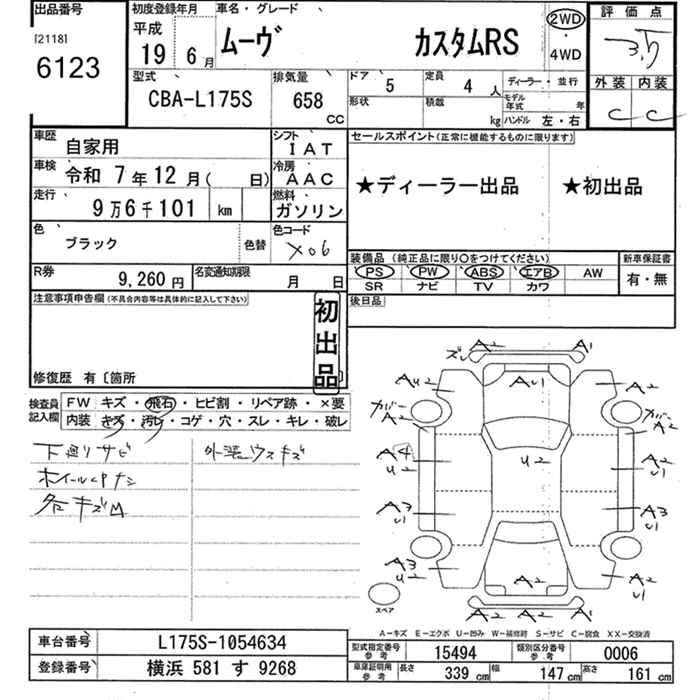 出品番号 初度登録年月 車名・グレード 評価点
[2118] 平成 ムーヴ カスタムRS 2WD 3.5
6123 19 6月 4WD
外装 内装
型式 排気量 ドア 5 定員 4人 ディーラー・並行 C C
CBA-L175S 658 CC 形状 積載 kg モデル年式 年
ハンドル 左・右
車歴 自家用 シフト IAT セールスポイント(正常に機能するものに限ります)
車検 令和 7年12月( 日) 冷房 AAC ★ディーラー出品 ★初出品
走行 9万6千101 km 燃料 ガソリン
色 ブラック 色替 色コード X06
装備品(純正品に限り○をつけてください) 新車保証書
R券 9,260円 名変通知期限 月 日 PS PW ABS エアB AW 有・無
SR ナビ TV カワ
注意事項申告欄(不具合内容等は具体的に記入して下さい) 初出品 後日品
修復歴 有〔箇所 〕
検査員記入欄 FW キズ・飛石・ヒビ割・リペア跡・×要
内装 キズ・汚レ・コゲ・穴・スレ・キレ・破レ
下廻リサビ 外装ウスキズ
ホイールCPナシ
各キズM
ズレ A2 A1
AU2 AU1 A2
ガバー A2 ガバー A2
A4 U2 U2 A2 U1
A3 U1 A3 U1
A3 U2 A2 A2 U1
スペア A2 A2 A2
A-キズ E-エクボ U-凹み W-補修跡 S-サビ C-腐食 XX-交換済
車台番号 L175S-1054634
型式指定番号 参考 15494 類別区分番号 参考 0006
登録番号 横浜 581 す 9268
車庫証明用 参考 長さ 339cm 幅 147cm 高さ 161cm